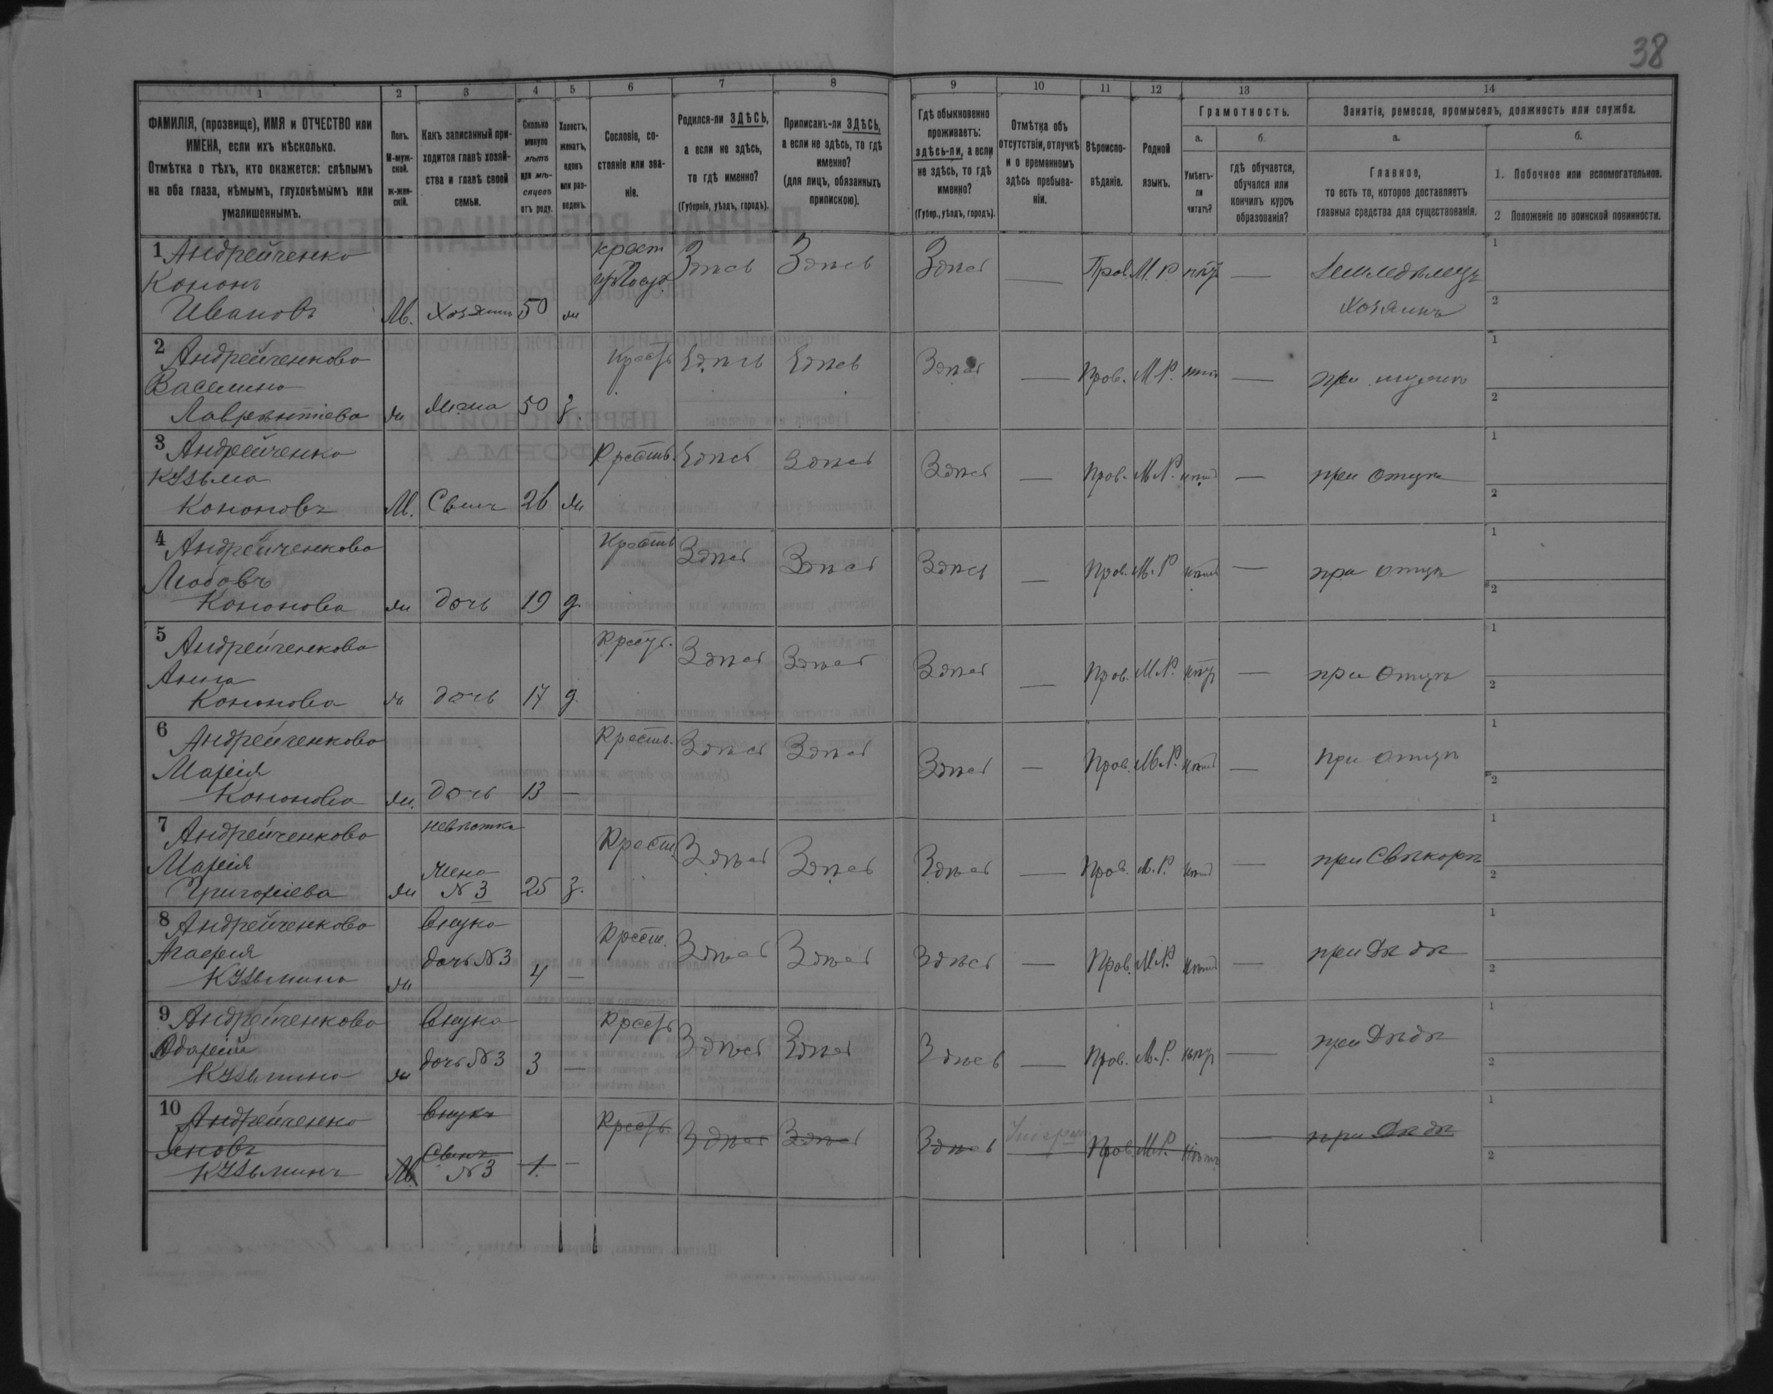 38
1 2 3 4 5 6 7 8 9 10 11 12 13 14
ФАМИЛІЯ, (прозвище), ИМЯ и ОТЧЕСТВО или ИМЕНА, если ихъ нѣсколько.
Отмѣтка о тѣхъ, кто окажется: слѣпымъ на оба глаза, нѣмымъ, глухонѣмымъ или умалишеннымъ.
Полъ.
М-мужской.
ж-женскій.
Какъ записанный приходится главѣ хозяйства и главѣ своей семьи.
Сколько минуло лѣтъ или мѣсяцевъ отъ роду.
Холостъ, женатъ, вдовъ или разведенъ.
Сословіе, состояніе или званіе.
Родился-ли ЗДѢСЬ, а если не здѣсь, то гдѣ именно?
(Губернія, уѣздъ, городъ).
Приписанъ-ли ЗДѢСЬ, а если не здѣсь, то гдѣ именно?
(для лицъ, обязанныхъ припискою).
Гдѣ обыкновенно проживаетъ: здѣсь-ли, а если не здѣсь, то гдѣ именно?
(Губер., уѣздъ, городъ).
Отмѣтка объ отсутствіи, отлучкѣ и о временномъ здѣсь пребываніи.
Вѣроисповѣданіе.
Родной языкъ.
Грамотность.
а.
Умѣетъ-ли читать?
б.
гдѣ обучается, обучался или кончилъ курсъ образованія?
Занятіе, ремесло, промыселъ, должность или служба.
а.
Главное,
то есть то, которое доставляетъ главныя средства для существованія.
б.
1. Побочное или вспомогательное.
2 Положеніе по воинской повинности.
1 Андрейченко
Кононъ
Ивановъ М. Хозяинъ 50 ж крест Здѣсь Здѣсь Здѣсь — Прав. М.Р. нѣтъ — Земледѣлецъ
Хозяинъ
1
2
2 Андрейченкова
Василина
Лаврентіева ж жена 50 з. Крест. Здѣсь Здѣсь Здѣсь — Прав. М.Р. нѣтъ — при мужѣ
1
2
3 Андрейченко
Кузьма
Кононовъ М. Сынъ 26 ж Крестьян. Здѣсь Здѣсь Здѣсь — Прав. М.Р. нѣтъ — при отцѣ
1
2
4 Андрейченкова
Любовъ
Кононова ж дочь 19 д. Крестьян Здѣсь Здѣсь Здѣсь — Прав. М.Р. нѣтъ — при отцѣ
1
2
5 Андрейченкова
Анна
Кононова ж дочь 17 д. Крест. Здѣсь Здѣсь Здѣсь — Прав. М.Р. нѣтъ — при отцѣ
1
2
6 Андрейченкова
Марія
Кононова ж. дочь 13 — Крестьян. Здѣсь Здѣсь Здѣсь — Прав. М.Р. нѣтъ — При отцѣ
1
2
7 Андрейченкова
Марія
Григоріева ж невѣстка
жена
№ 3 25 з. Крестьян Здѣсь Здѣсь Здѣсь — Прав. М.Р. нѣтъ — при Свѣкорѣ
1
2
8 Андрейченкова
Агафія
Кузьмина ж внука
дочь №3 4 — Крест. Здѣсь Здѣсь Здѣсь — Прав. М.Р. нѣтъ — при Дѣдѣ
1
2
9 Андрейченкова
Одарія
Кузьмина ж внука
дочь №3 3 — Крест. Здѣсь Здѣсь Здѣсь — Прав. М.Р. нѣтъ — при Дѣдѣ
1
2
10 Андрейченко
Яковъ
Кузьминъ М. внукъ
Сынъ
№3 1. — Крест. Здѣсь Здѣсь Здѣсь Прав. М.Р. нѣтъ — при Дѣдѣ
1
2